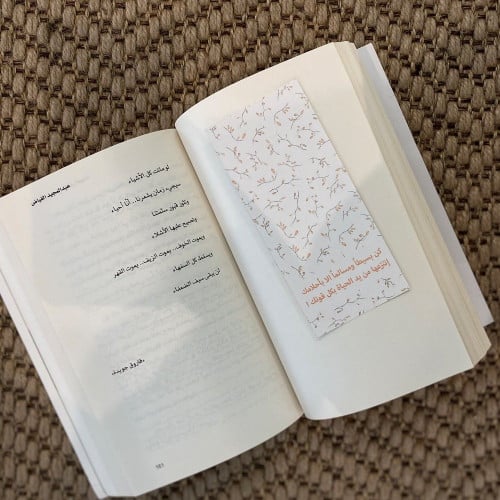 عبدالمجيد الفياض
لو ماتت كل الأشياء
سيجيء زمان يشعرنا.. أنا أحياء
وتثور قبور سئمتنا
وتصيح عليها الأشلاء
ويموت الخوف.. يموت الزيف.. يموت القهر
ويسقط كل السفهاء
لن يبقى سيف الضعفاء
«فاروق جويدة»
كن بسيطاً ومسالماً الا بأحلامك
إنتزعها من يد الحياة بكل قوتك !